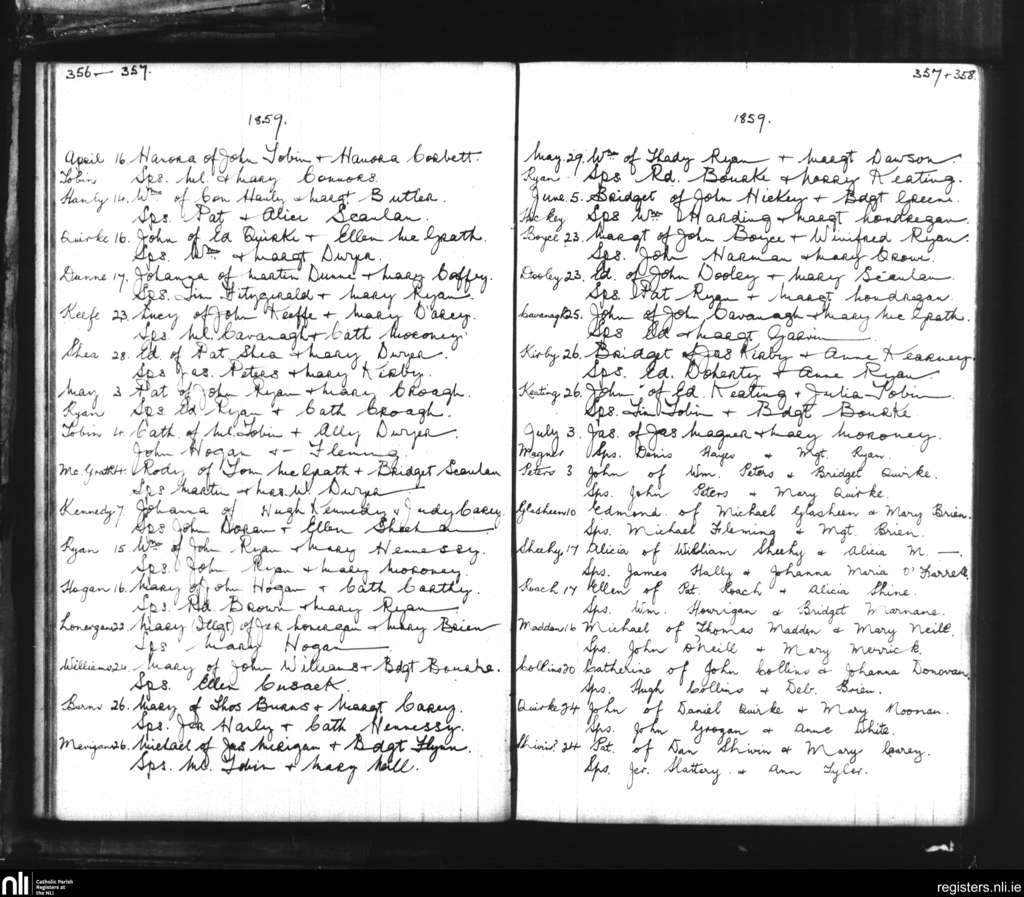 356 — 357.
1859.
April 16. Hanora of John Tobin + Hanora Corbett.
Tobin Sps. Ml. & Mary Connors.
Hanly 14. Wm of Con Hanly & Margt Butler.
Sps. Pat & Alice Scanlan.
Quirke 16. John of Ed Quirke + Ellen McGrath.
Sps. Wm & Margt Dwyer.
Dunne 17. Johanna of Martin Dunne + Mary Coffey.
Sps. Tim Fitzgerald + Mary Ryan
Keefe 23. Lucy of John Keeffe + Mary Darcy.
Sps. Ml. Cavanagh + Cath Moroney.
Shea 28. Ed. of Pat Shea & Mary Dwyer.
Sps Jas. Peters & Mary Kerby.
May 3 Pat of John Ryan & Mary Croagh.
Ryan Sps Ed Ryan + Cath Croagh.
Tobin 4. Cath. of Ml. Tobin + Ally Dwyer.
John Hogan & — Fleming
Mc Grath 4. Rody of Tom McGrath + Bridget Scanlan
Sps Martin & Dwyer
Kennedy 7 Johana of Hugh Kennedy & Judy Carey.
Sps John Dogan & Ellen Sheehan
Ryan 15. Wm of John Ryan & Mary Hennessy.
Sps. John Ryan & Mary Moroney.
Hogan 16. Mary of John Hogan + Cath Carthy.
Sps. Rd Brown & Mary Ryan
Lonergan 22. Mary (Illgt) of Jer Lonergan & Mary Brien
Sps Mary Hogan
Williams 24. Mary of John Williams + Bdgt Bourke.
Sps. Ellen Cusack.
Burns 26. Mary of Thos Burns & Margt Carey.
Sps. Jer Hanly + Cath Hennessy.
Merigan 26. Michael of Jas Merigan & Bdgt Flynn.
Sps. Mc. Tobin & Mary Neill.
357 + 358.
1859.
May 29. Wm of Thady Ryan + Margt Dawson
Ryan Sps Rd. Bourke & Norry Keating.
June 5. Bridget of John Hickey + Bdgt Greene.
Hickey Sps Wm Harding & Margt Londregan.
Boyce 23. Margt of John Boyce + Winifred Ryan.
Sps. John Harman & Mary Crowe.
Dooley 23. Ed. of John Dooley + Mary Scanlan.
Sps. Pat Ryan + Margt Londregan.
Cavanagh 25. John of John Cavanagh & Mary McGrath.
Sps Ed & Margt Garvin
Kirby 26. Bridget of Jas Kirby + Anne Kearney.
Sps. Ed. Doherty & Anne Ryan.
Keating 26. John of Ed Keating + Julia Tobin
Sps. Tim Tobin + Bdgt Bourke
July 3. Jas. of Jas Magner & Mary Moroney.
Magner Sps. Denis Hayes & Mgt. Ryan.
Peters 3 John of Wm. Peters & Bridget Quirke.
Sps. John Peters & Mary Quirke.
Glasheen 10 Edmond of Michael Glasheen & Mary Brien.
Sps. Michael Fleming & Mgt. Brien.
Sheehy 17 Alicia of William Sheehy & Alicia M. —.
Sps. James Hally & Johanna Maria O'Farrell.
Roach 17 Ellen of Pat. Roach & Alicia Shine.
Sps. Wm. Hourrigan & Bridget Marnane.
Madden 16 Michael of Thomas Madden & Mary Neill.
Sps. John O'Neill & Mary Merrick.
Collins 20 Catherine of John Collins & Johanna Donovan.
Sps. Hugh Collins & Deb. Brien.
Quirke 24 John of Daniel Quirke & Mary Noonan.
Sps. John Grogan & Anne White.
Shivin? 24 Pat. of Dan Shivin & Mary Carey.
Sps. Jer. Slattery & Ann Tyler.
nli Catholic Parish
Registers at
the NLI
registers.nli.ie